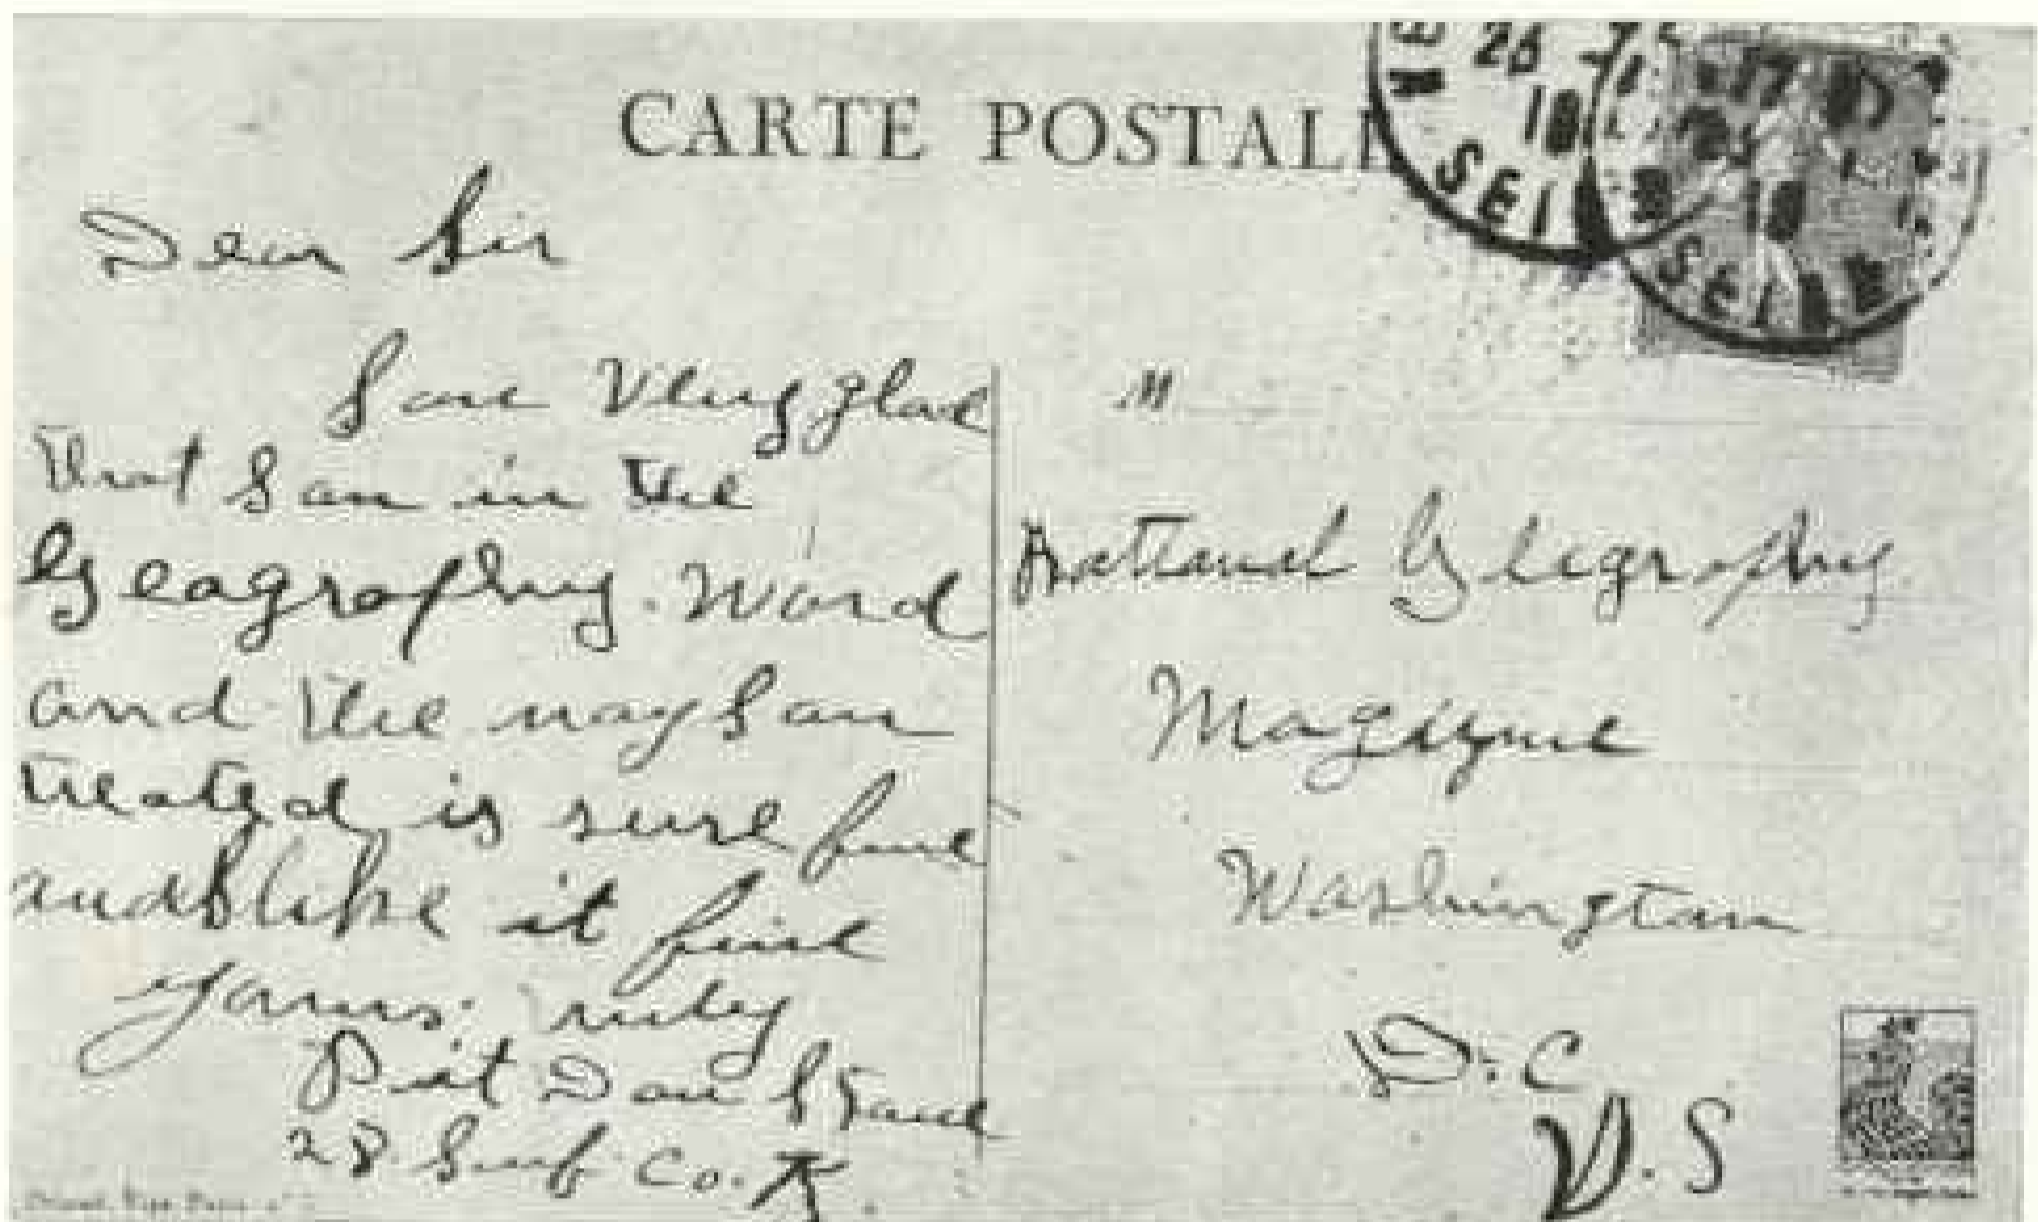 CARTE POSTALE
26
18
SEI
17
18
SEINE
Dear Sir
I am Very glad
that I am in the
Geagraphy. Ward
and the way I am
treated is sure fine
and I like it fine
yours truly
Pvt Dan
28 Inf Co. K
M
National Geography
Magizine
Washington
D. C
U. S